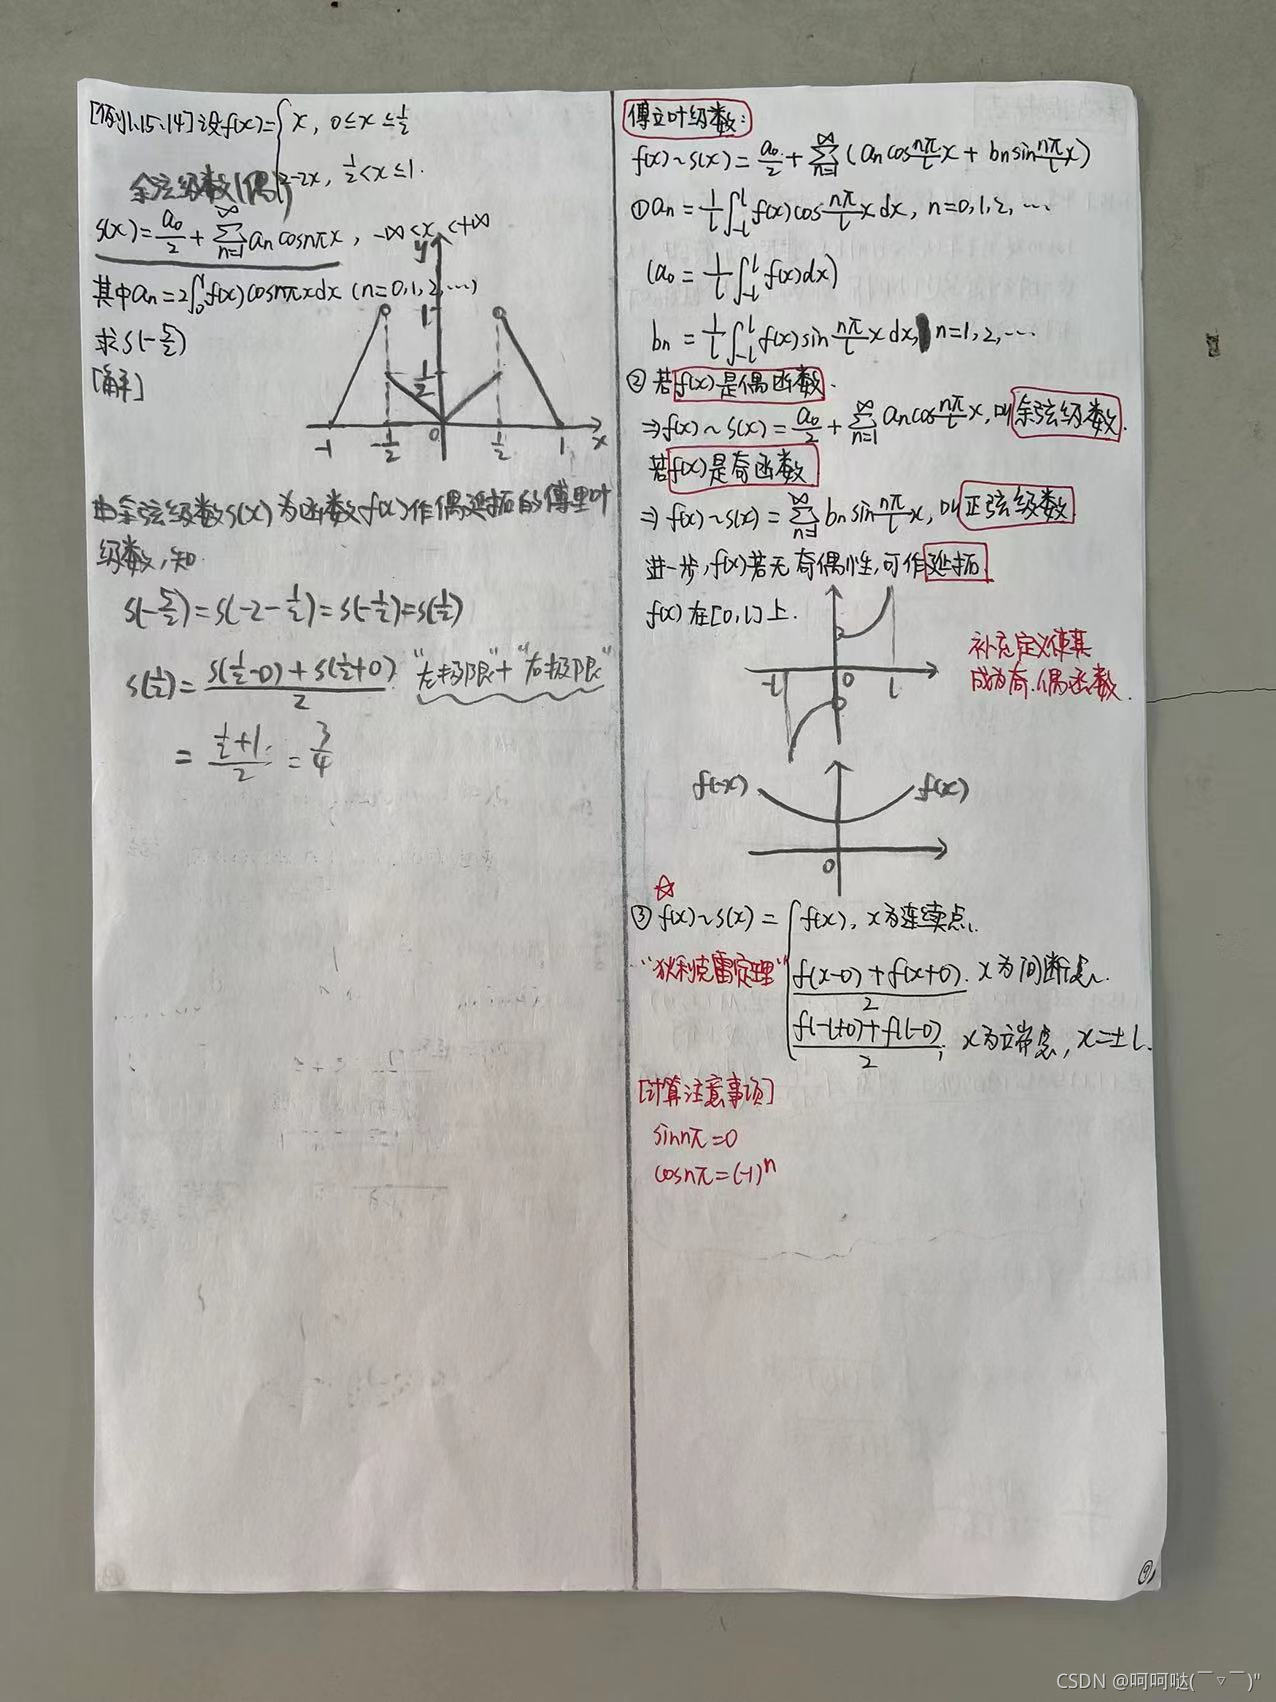 [例1.15.14] 设f(x)={ x, 0≤x≤1/2
2-2x, 1/2<x≤1.
余弦级数(偶)
S(x)=a₀/2+∑(n=1→∞)aₙcosnπx, -∞<x<+∞
其中aₙ=2∫₀¹f(x)cosnπxdx (n=0,1,2,…)
求S(-5/2)
[解]
y
1
1/2
-1 -1/2 0 1/2 1 x
由余弦级数S(x)为函数f(x)作偶延拓的傅里叶
级数,知.
S(-5/2)=S(-2-1/2)=S(-1/2)=S(1/2)
S(1/2)=(S(1/2-0)+S(1/2+0))/2. "左极限"+"右极限"
=(1/2+1)/2=3/4
傅立叶级数:
f(x)~S(x)=a₀/2+∑(n=1→∞)(aₙcos nπ/l x+bₙsin nπ/l x)
①aₙ=1/l∫₋ₗˡf(x)cos nπ/l x dx, n=0,1,2,…
(a₀=1/l∫₋ₗˡf(x)dx)
bₙ=1/l∫₋ₗˡf(x)sin nπ/l x dx, n=1,2,…
②若f(x)是偶函数.
⇒f(x)~S(x)=a₀/2+∑(n=1→∞)aₙcos nπ/l x, 叫余弦级数.
若f(x)是奇函数
⇒f(x)~S(x)=∑(n=1→∞)bₙsin nπ/l x, 叫正弦级数
进一步,f(x)若无奇偶性,可作延拓
f(x)在[0,l]上.
-l 0 l
补充定义使其
成为奇.偶函数.
f(-x) f(x)
0
☆
③f(x)~S(x)={ f(x), x为连续点.
"狄利克雷定理"
(f(x-0)+f(x+0))/2. x为间断点.
(f(-l+0)+f(l-0))/2, x为端点, x=±l.
[计算注意事项]
sinnπ=0
cosnπ=(-1)ⁿ
⑨
CSDN @呵呵哒(￣▽￣)"